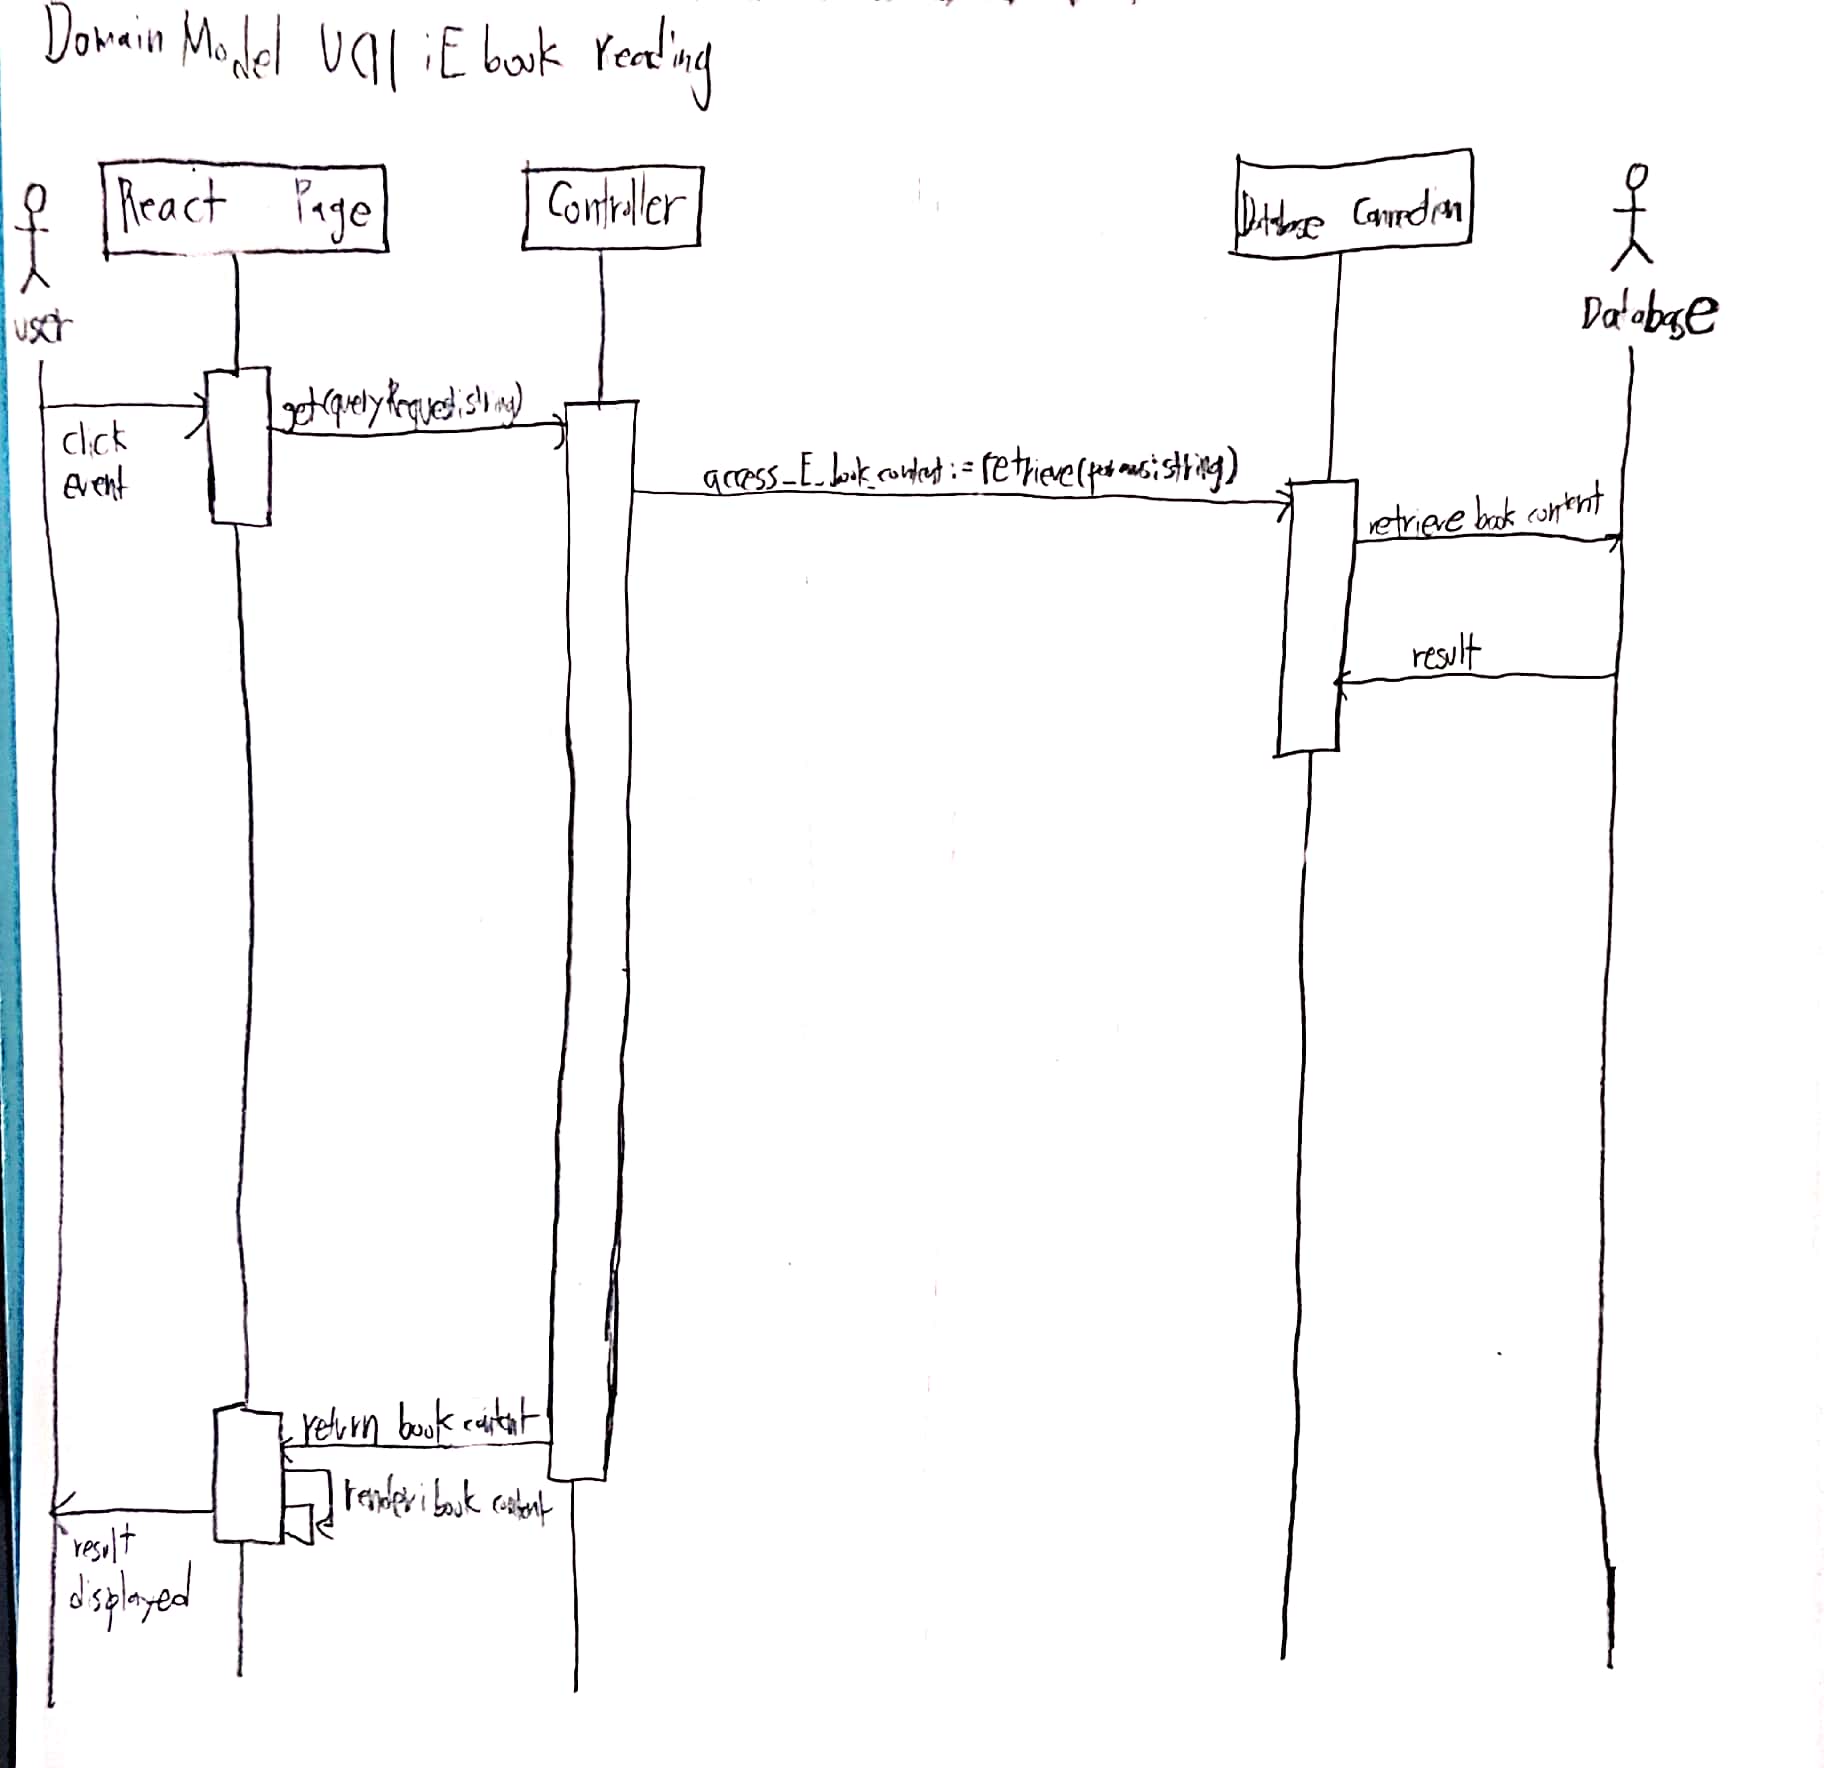 Domain Model UC11 : E book reading
React Page
Controller
Database Connection
user
Database
click
event
get(queryRequest:string)
access_E_book_content:=retrieve(      :string)
retrieve book content
result
return book content
render:book content
result
displayed